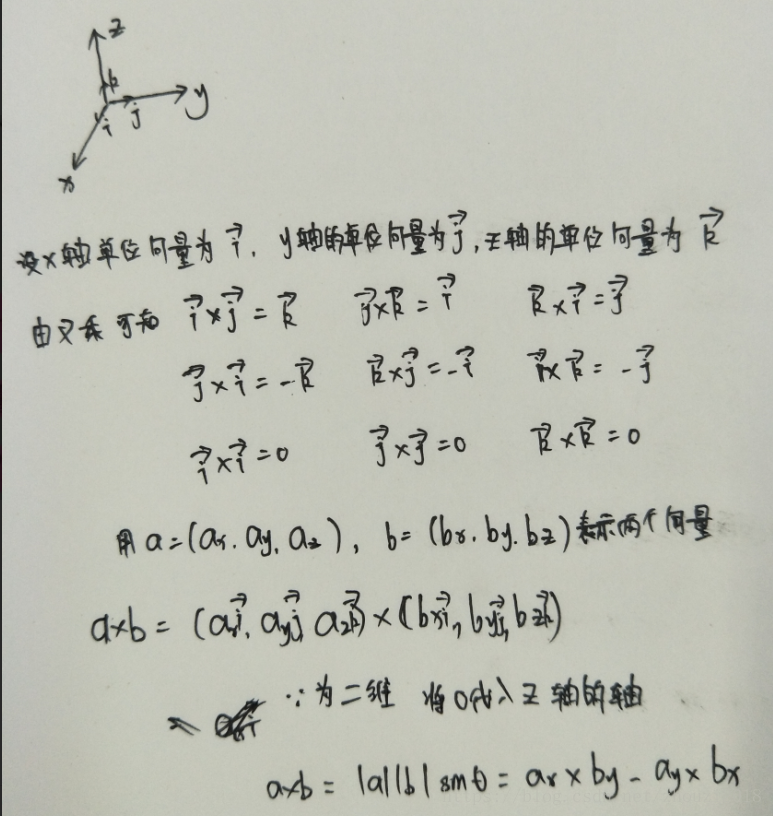 z
k
i j y
x
设x轴单位向量为 i⃗, y轴的单位向量为j⃗, z轴的单位向量为 k⃗
由叉乘可知 i⃗×j⃗=k⃗ j⃗×k⃗=i⃗ k⃗×i⃗=j⃗
j⃗×i⃗=-k⃗ k⃗×j⃗=-i⃗ i⃗×k⃗=-j⃗
i⃗×i⃗=0 j⃗×j⃗=0 k⃗×k⃗=0
用 a=(ax, ay, az), b=(bx, by, bz)表示两个向量
a×b=(axi⃗, ayj⃗, azk⃗)×(bxi⃗, byj⃗, bzk⃗)
∵为二维 将0代入z轴的轴
a×b=|a||b|sinθ=ax×by-ay×bx